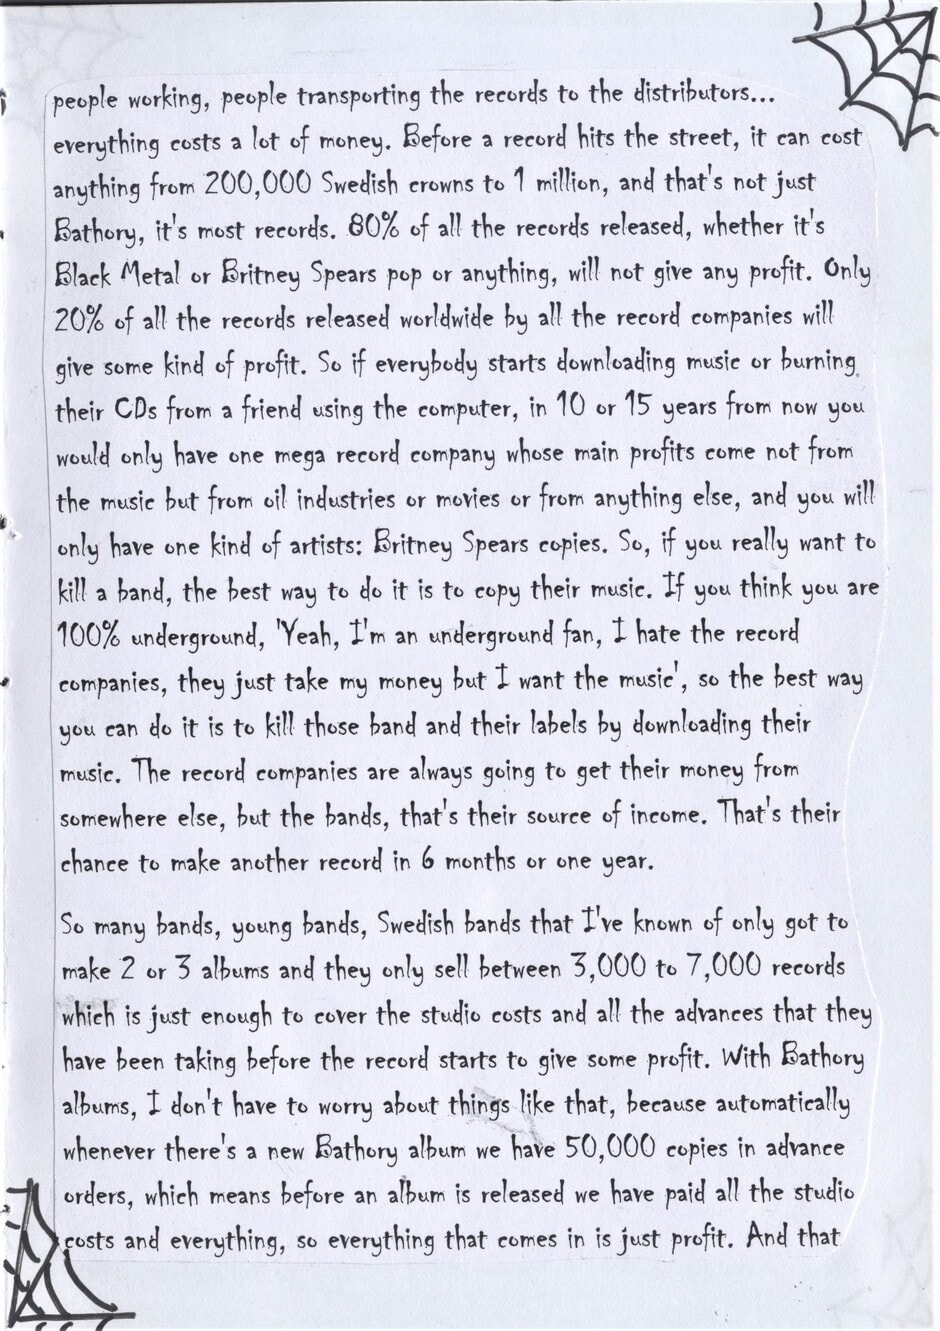 people working, people transporting the records to the distributors...
everything costs a lot of money. Before a record hits the street, it can cost
anything from 200,000 Swedish crowns to 1 million, and that's not just
Bathory, it's most records. 80% of all the records released, whether it's
Black Metal or Britney Spears pop or anything, will not give any profit. Only
20% of all the records released worldwide by all the record companies will
give some kind of profit. So if everybody starts downloading music or burning
their CDs from a friend using the computer, in 10 or 15 years from now you
would only have one mega record company whose main profits come not from
the music but from oil industries or movies or from anything else, and you will
only have one kind of artists: Britney Spears copies. So, if you really want to
kill a band, the best way to do it is to copy their music. If you think you are
100% underground, 'Yeah, I'm an underground fan, I hate the record
companies, they just take my money but I want the music', so the best way
you can do it is to kill those band and their labels by downloading their
music. The record companies are always going to get their money from
somewhere else, but the bands, that's their source of income. That's their
chance to make another record in 6 months or one year.
So many bands, young bands, Swedish bands that I've known of only got to
make 2 or 3 albums and they only sell between 3,000 to 7,000 records
which is just enough to cover the studio costs and all the advances that they
have been taking before the record starts to give some profit. With Bathory
albums, I don't have to worry about things like that, because automatically
whenever there's a new Bathory album we have 50,000 copies in advance
orders, which means before an album is released we have paid all the studio
costs and everything, so everything that comes in is just profit. And that